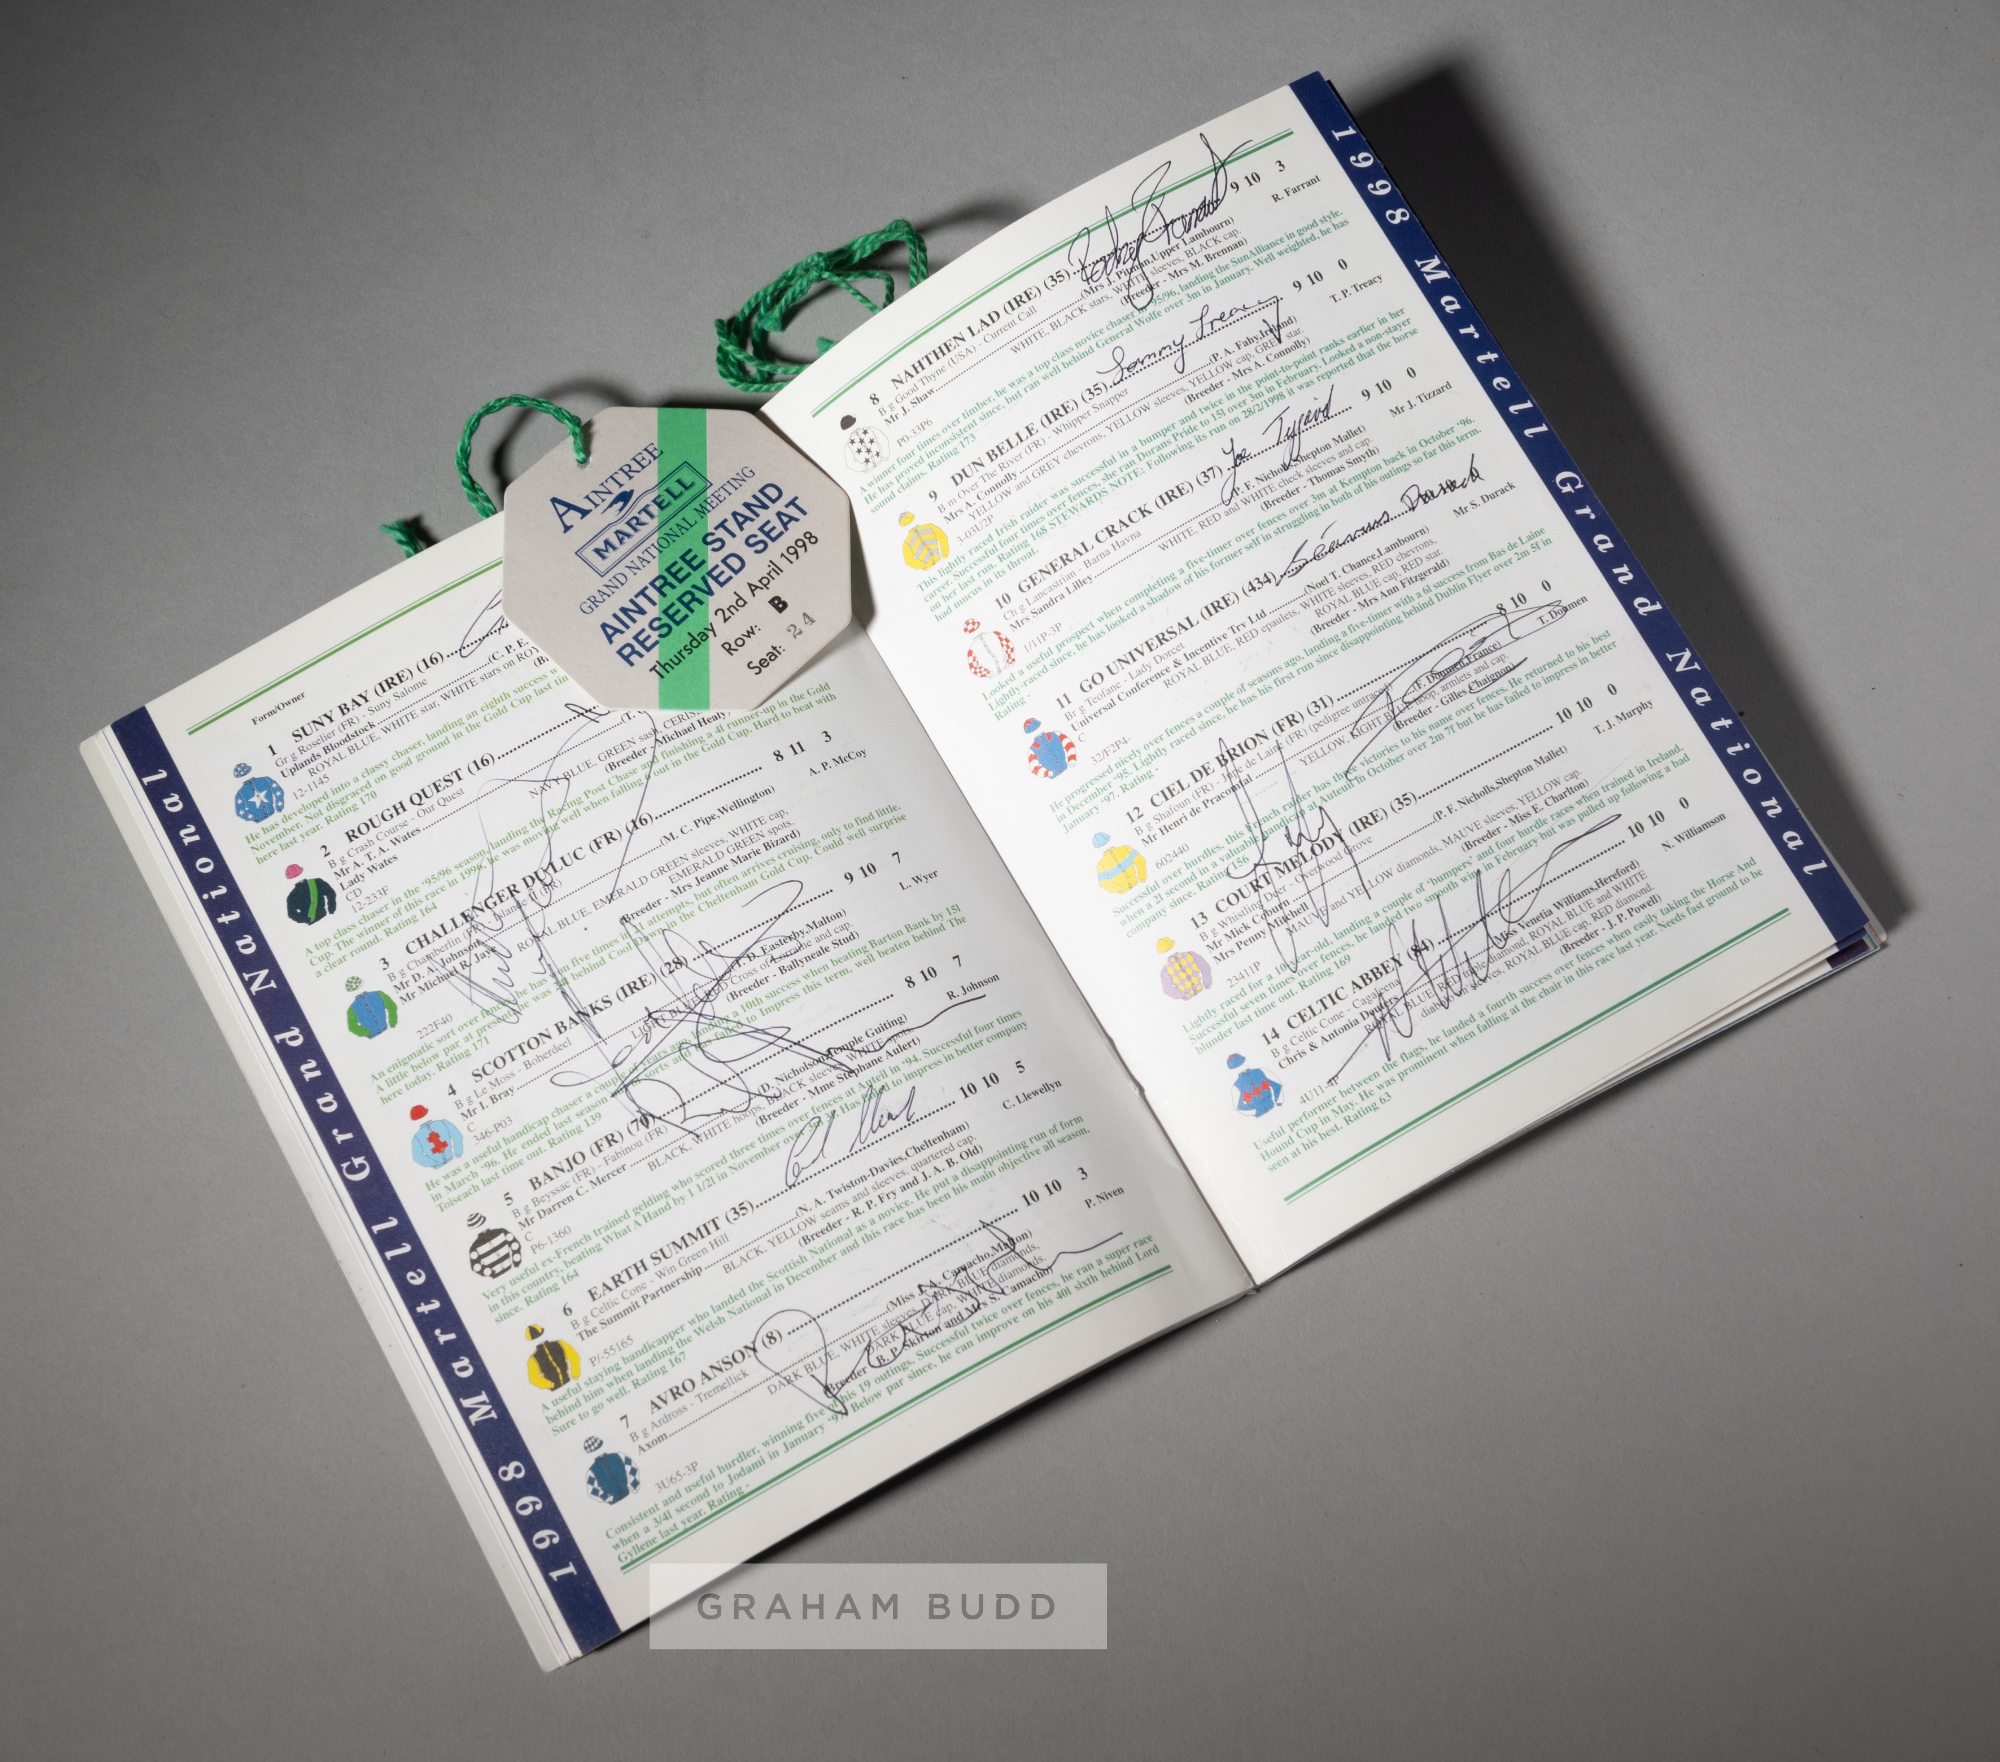 1998 Martell Grand National
Form/Owner
1 SUNY BAY (IRE) (16)
Gr g Roselier (FR) - Suny Salome
Uplands Bloodstock
ROYAL BLUE, WHITE star, WHITE stars on
12-1145
He has developed into a classy chaser, landing an eighth success
November. Not disgraced on good ground in the Gold Cup last
here last year. Rating 170
2 ROUGH QUEST (16)
B g Crash Course - Our Quest
Mr A. T. A. Wates
Lady Wates
NAVY BLUE, GREEN sash, CERISE
(Breeder - Michael Healy)
CD
12-233F
A top class chaser in the '95/96 season, landing the Racing Post Chase and finishing a 4l runner-up in the Gold
Cup. The winner of this race in 1996, he was moving well when falling 4 out in the Gold Cup. Hard to beat with
a clear round. Rating 164
3 CHALLENGER DU LUC (FR) (16) 8 11 3
B g Chamberlin (FR)
Mr D. A. Johnson (M. C. Pipe,Wellington) A. P. McCoy
Mr Michael R. Jaye
ROYAL BLUE, EMERALD GREEN sleeves, WHITE cap,
EMERALD GREEN spots.
(Breeder - Mrs Jeanne Marie Bizard)
222F40
An enigmatic sort over fences, he has won five times in 21 attempts, but often arrives cruising, only to find little.
A little below par at present, he was behind Cool Dawn in the Cheltenham Gold Cup. Could well surprise
here today. Rating 171
4 SCOTTON BANKS (IRE) (28) 9 10 7
B g Le Moss - Boherdeel
Mr I. Bray (T. D. Easterby,Malton) L. Wyer
LIGHT BLUE, RED Cross of Lorraine and cap.
(Breeder - Ballyneale Stud)
C
346-P03
He was a useful handicap chaser a couple of years ago, landing a 10th success when beating Barton Bank by 15l
in March '96. He ended last season out of sorts and has failed to impress this term, well beaten behind The
Toiseach last time out. Rating 139
5 BANJO (FR) (70) 8 10 7
B g Beyssac (FR) - Fabinou (FR)
Mr Darren C. Mercer (D. Nicholson,Temple Guiting) R. Johnson
BLACK, WHITE hoops, BLACK sleeves, WHITE spots.
(Breeder - Mme Stephane Aulert)
C
P6-1360
Very useful ex-French trained gelding who scored three times over fences at Auteil in '94. Successful four times
in this country, beating What A Hand by 1 1/2l in November over 3m. Has failed to impress in better company
since. Rating 164
6 EARTH SUMMIT (35) 10 10 5
B g Celtic Cone - Win Green Hill
The Summit Partnership (N. A. Twiston-Davies,Cheltenham) C. Llewellyn
BLACK, YELLOW seams and sleeves, quartered cap.
(Breeder - R. P. Fry and J. A. B. Old)
P/-55165
A useful staying handicapper who landed the Scottish National as a novice. He put a disappointing run of form
behind him when landing the Welsh National in December and this race has been his main objective all season.
Sure to go well. Rating 167
7 AVRO ANSON (8) 10 10 3
B g Ardross - Tremellick
Axom (Miss J. A. Camacho,Malton) P. Niven
DARK BLUE, WHITE sleeves, DARK BLUE diamonds,
DARK BLUE cap, WHITE diamonds.
(Breeder - B. P. Skirton and Mrs S. Camacho)
3U65-3P
Consistent and useful hurdler, winning five of his 19 outings. Successful twice over fences, he ran a super race
when a 3/4l second to Jodami in January '97. Below par since, he can improve on his 40l sixth behind Lord
Gyllene last year. Rating -
AINTREE
MARTELL
GRAND NATIONAL MEETING
AINTREE STAND
RESERVED SEAT
Thursday 2nd April 1998
Row: B
Seat: 24
8 NAHTHEN LAD (IRE) (35) Rodney Farrant 9 10 3
B g Good Thyne (USA) - Current Call
Mr J. Shaw (Mrs J. Pitman,Upper Lambourn) R. Farrant
WHITE, BLACK stars, WHITE sleeves, BLACK cap.
(Breeder - Mrs M. Brennan)
P0-33P6
A winner four times over timber, he was a top class novice chaser in '95/96, landing the SunAlliance in good style.
He has proved inconsistent since, but ran well behind General Wolfe over 3m in January. Well weighted, he has
sound claims. Rating 173
9 DUN BELLE (IRE) (35) Tommy Treacy 9 10 0
B m Over The River (FR) - Whipper Snapper
Mrs A. Connolly (P. A. Fahy,Ireland) T. P. Treacy
YELLOW and GREY chevrons, YELLOW sleeves, YELLOW cap, GREY star.
(Breeder - Mrs A. Connolly)
3-03U2P
This lightly raced Irish raider was successful in a bumper and twice in the point-to-point ranks earlier in her
career. Successful four times over fences, she ran Dorans Pride to 15l over 3m in February. Looked a non-stayer
on her last run. Rating 168 STEWARDS NOTE: Following its run on 28/2/1998 it was reported that the horse
had mucus in its throat.
10 GENERAL CRACK (IRE) (37) Joe Tizzard 9 10 0
Ch g Lancastrian - Barna Havna
Mrs Sandra Lilley (P. F. Nicholls,Shepton Mallet) Mr J. Tizzard
WHITE, RED and WHITE check sleeves and cap.
(Breeder - Thomas Smyth)
1/11P-3P
Looked a useful prospect when completing a five-timer over fences over 3m at Kempton back in October '96.
Lightly-raced since, he has looked a shadow of his former self in struggling in both of his outings so far this term.
Rating -
11 GO UNIVERSAL (IRE) (434) Séamus Durack
Br g Teofane - Lady Dorcet
Universal Conference & Incentive Trv Ltd (Noel T. Chance,Lambourn) Mr S. Durack
ROYAL BLUE, RED epaulets, WHITE sleeves, RED chevrons,
ROYAL BLUE cap, RED star.
(Breeder - Mrs Ann Fitzgerald)
C
32/F2P4-
He progressed nicely over fences a couple of seasons ago, landing a five-timer with a 6l success from Bas de Laine
in December '95. Lightly raced since, he has his first run since disappointing behind Dublin Flyer over 2m 5f in
January '97. Rating -
12 CIEL DE BRION (FR) (31) 8 10 0
B g Shafoun (FR) - Jape de Laine (FR) (pedigree untraced)
Mr Henri de Pracomtal (F. Doumen,France) T. Doumen
YELLOW, LIGHT BLUE hoop, armlets and cap.
(Breeder - Gilles Chaignon)
602440
Successful over hurdles, this French raider has three victories to his name over fences. He returned to his best
when a 2l second in a valuable handicap at Auteuil in October over 2m 7f but he has failed to impress in better
company since. Rating 156
13 COURT MELODY (IRE) (35) 10 10 0
B g Whistling Deer - Overwood Grove
Mr Mick Coburn (P. F. Nicholls,Shepton Mallet) T. J. Murphy
Mrs Penny Mitchell
MAUVE and YELLOW diamonds, MAUVE sleeves, YELLOW cap.
(Breeder - Miss E. Charlton)
23411P
Lightly raced for a 10-year-old, landing a couple of 'bumpers' and four hurdle races when trained in Ireland.
Successful seven times over fences, he landed two smooth wins in February but was pulled up following a bad
blunder last time out. Rating 169
14 CELTIC ABBEY (84) 10 10 0
B g Celtic Cone - Cagaleena
Chris & Antonia Deuters (Miss Venetia Williams,Hereford) N. Williamson
ROYAL BLUE, RED triple diamond, ROYAL BLUE and WHITE
diabolo on sleeves, ROYAL BLUE cap, RED diamond.
(Breeder - J. P. Powell)
4U11-4P
Useful performer between the flags, he landed a fourth success over fences when easily taking the Horse And
Hound Cup in May. He was prominent when falling at the chair in this race last year. Needs fast ground to be
seen at his best. Rating 63
1998 Martell Grand National
GRAHAM BUDD